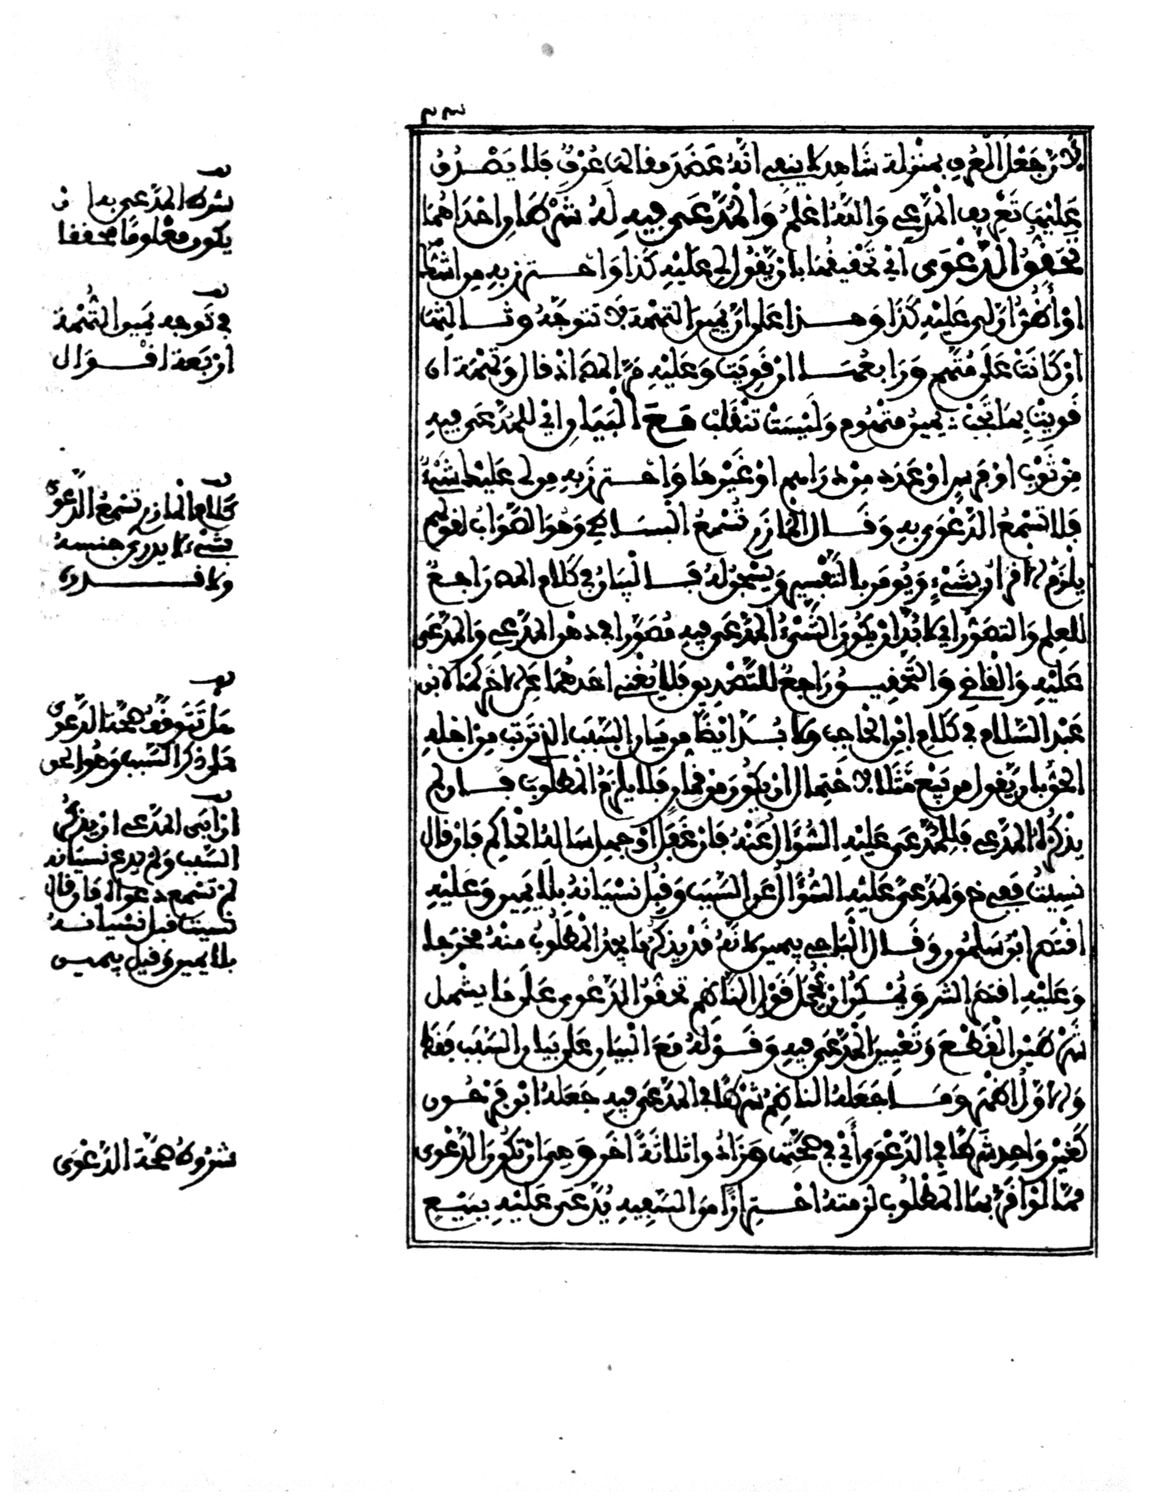 ٢٣
لأن جعل العرف بمنزلة شاهد لا ينفي أنه عضد مقالته عرف فلا يصرف
عليه تعريف المدعي والله أعلم والمدعى فيه له شرطان إحداهما
تحقق الدعوى أي تحقيقها بأن يقول لي عليه كذا واحترز به من أشك
أو أظن أن لي عليه كذا وهذا على أن يمين التهمة لا تتوجه وثالثها
إن كانت على متهم ورابعها إن قويت وعليه مر المص إذ قال وتهمة إن
قويت بها تجب يمين متهوم وليست تنقلب مع البيان أي للمدعى فيه
من ثوب أو فرس أو عدد من دراهم أو غيرها واحترز به من لي عليه شيء
فلا تسمع الدعوى به وقال المازري تسمع البساطي وهو الصواب لقولهم
يلزم الإقرار بشيء ويؤمر بالتفسير ويسجن له فالبيان في كلام المص راجع
للعلم والتصور أي لا بد أن يكون الشيء المدعى فيه مصورا في ذهن المدعي والمدعى
عليه والقاضي والتحقيق راجع للتصديق فلا يغني أحدهما عن الآخر كما لابن
عبد السلام في كلام ابن الحاجب ولا بد أيضا من بيان السبب الذي ترتب من أجله
الحق بأن يقول من بيع مثلا لاحتمال أن يكون من قمار فلا يلزم المطلوب فإن لم
يذكره المدعي فللمدعى عليه السؤال عنه فإن غفل أو جهل سأله الحاكم فإن قال
نسيت ففي خ ولمدعى عليه السؤال عن السبب وقبل نسيانه بلا يمين وعليه
اقتصر ابن سلمون وقال الباجي بيمين لأنه قد يذكر ما يجد المطلوب منه مخرجا
وعليه اقتصر الش ويمكن أن يحمل قول الناظم تحقق الدعوى على ما يشمل
شرطين القطع وتعيين المدعى فيه وقوله مع البيان على بيان السبب فقط
والأول أظهر وما جعله الناظم شرطا في المدعى فيه جعله ابن فرحون
كغير واحد شرطا في الدعوى أي في صحتها وزادوا ثلاثة أخر وهي أن تكون الدعوى
مما لو أقر بها المطلوب لزمته احترازا من السفيه يدعى عليه ببيع
شرط المدعى به أن
يكون معلوما محققا
في توجه يمين التهمة
أربعة أقوال
كلام المازري تسمع الدعوى
بشيء لا يدرى جنسه
ولا قدره
هل تتوقف صحة الدعوى
على ذكر السبب وهو الحق
إن أبى المدعي أن يذكر
السبب ولم يدع نسيانه
لم تسمع دعواه فإن قال
نسيت قبل نسيانه
بلا يمين وقيل بيمين
شروط صحة الدعوى